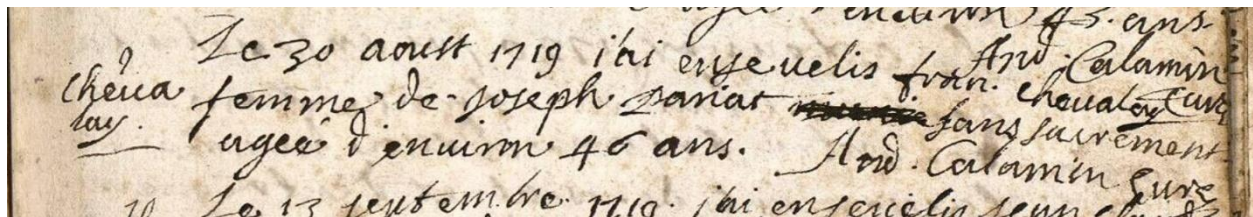 d'environ 45. ans
And. Calamin Curé
Le 30 aoust 1719 j'ai ensevelis fran. chevalay
Chèva
lay.
femme de joseph pariat sans sacrement
agée d'environ 46 ans. And. Calamin Curé
Le 13 septembre 1719. j'ai ensevelis